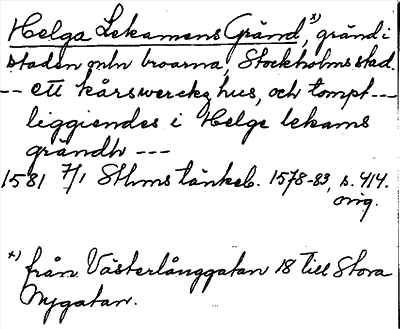 Helga Lekamens Gränd,*) gränd i
staden mln broarna, Stockholms stad.
-- ett kårswercke hus, och tompt ---
liggiendes i Helge lekams
grändh ---
1581 7/1 Sthms tänkeb. 1578-83, s. 414.
orig.
*) från Västerlånggatan 18 till Stora
Nygatan.